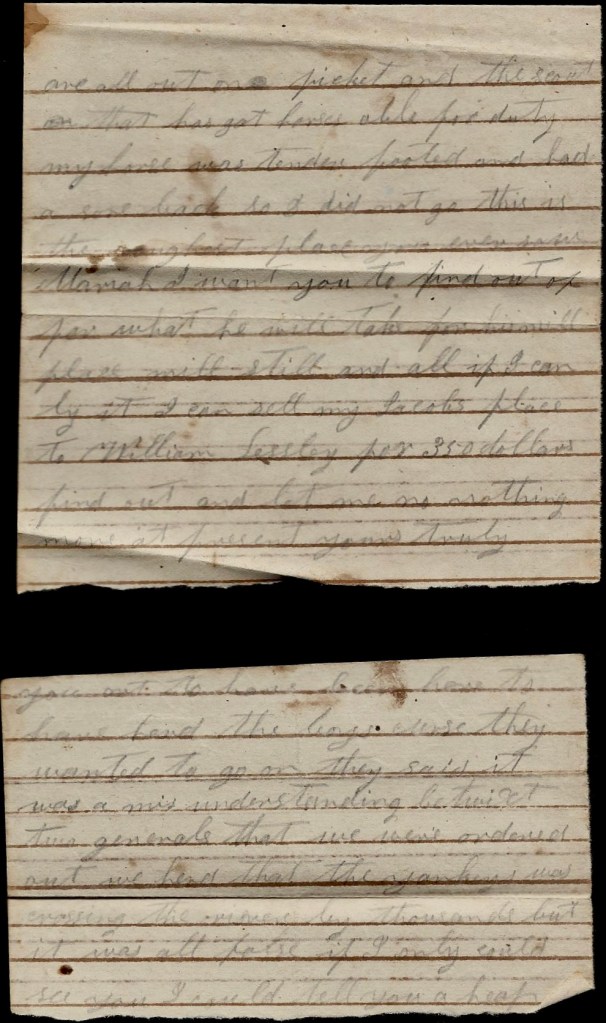 are all out on picket and the scout
on that has got horses able for duty
my horse was tender footed and had
a sore back so I did not go this is
the place you ever saw
Mariah I want you to find out of
for what he will take for his mill
place mill still and all if I can
by it I can sell my Jacobs place
to William Lessley for 350 dollars
find out and let me no nothing
more at present yours truly
you out to have been here to
have herd the boys curse they
wanted to go on they said it
was a mis understanding betwixt
two generals that we were ordered
out we herd that the yankeys was
crossing the river by thousands but
it was all false if I only could
see you I could tell you a heap